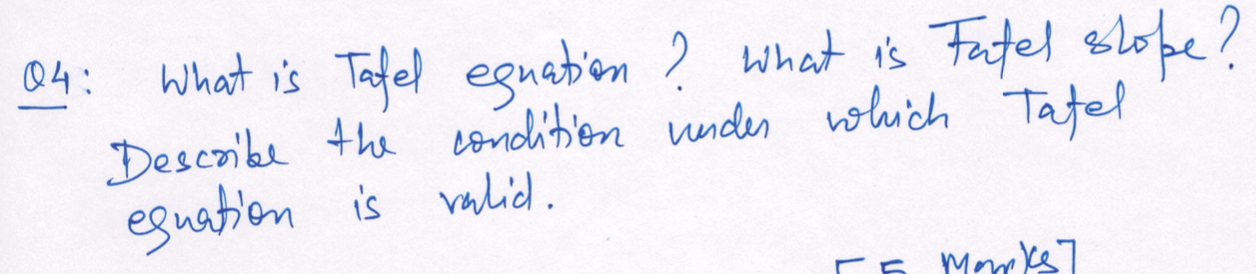 Q4: What is Tafel equation ? What is Tafel slope?
Describe the condition under which Tafel
equation is valid.
[5 Marks]